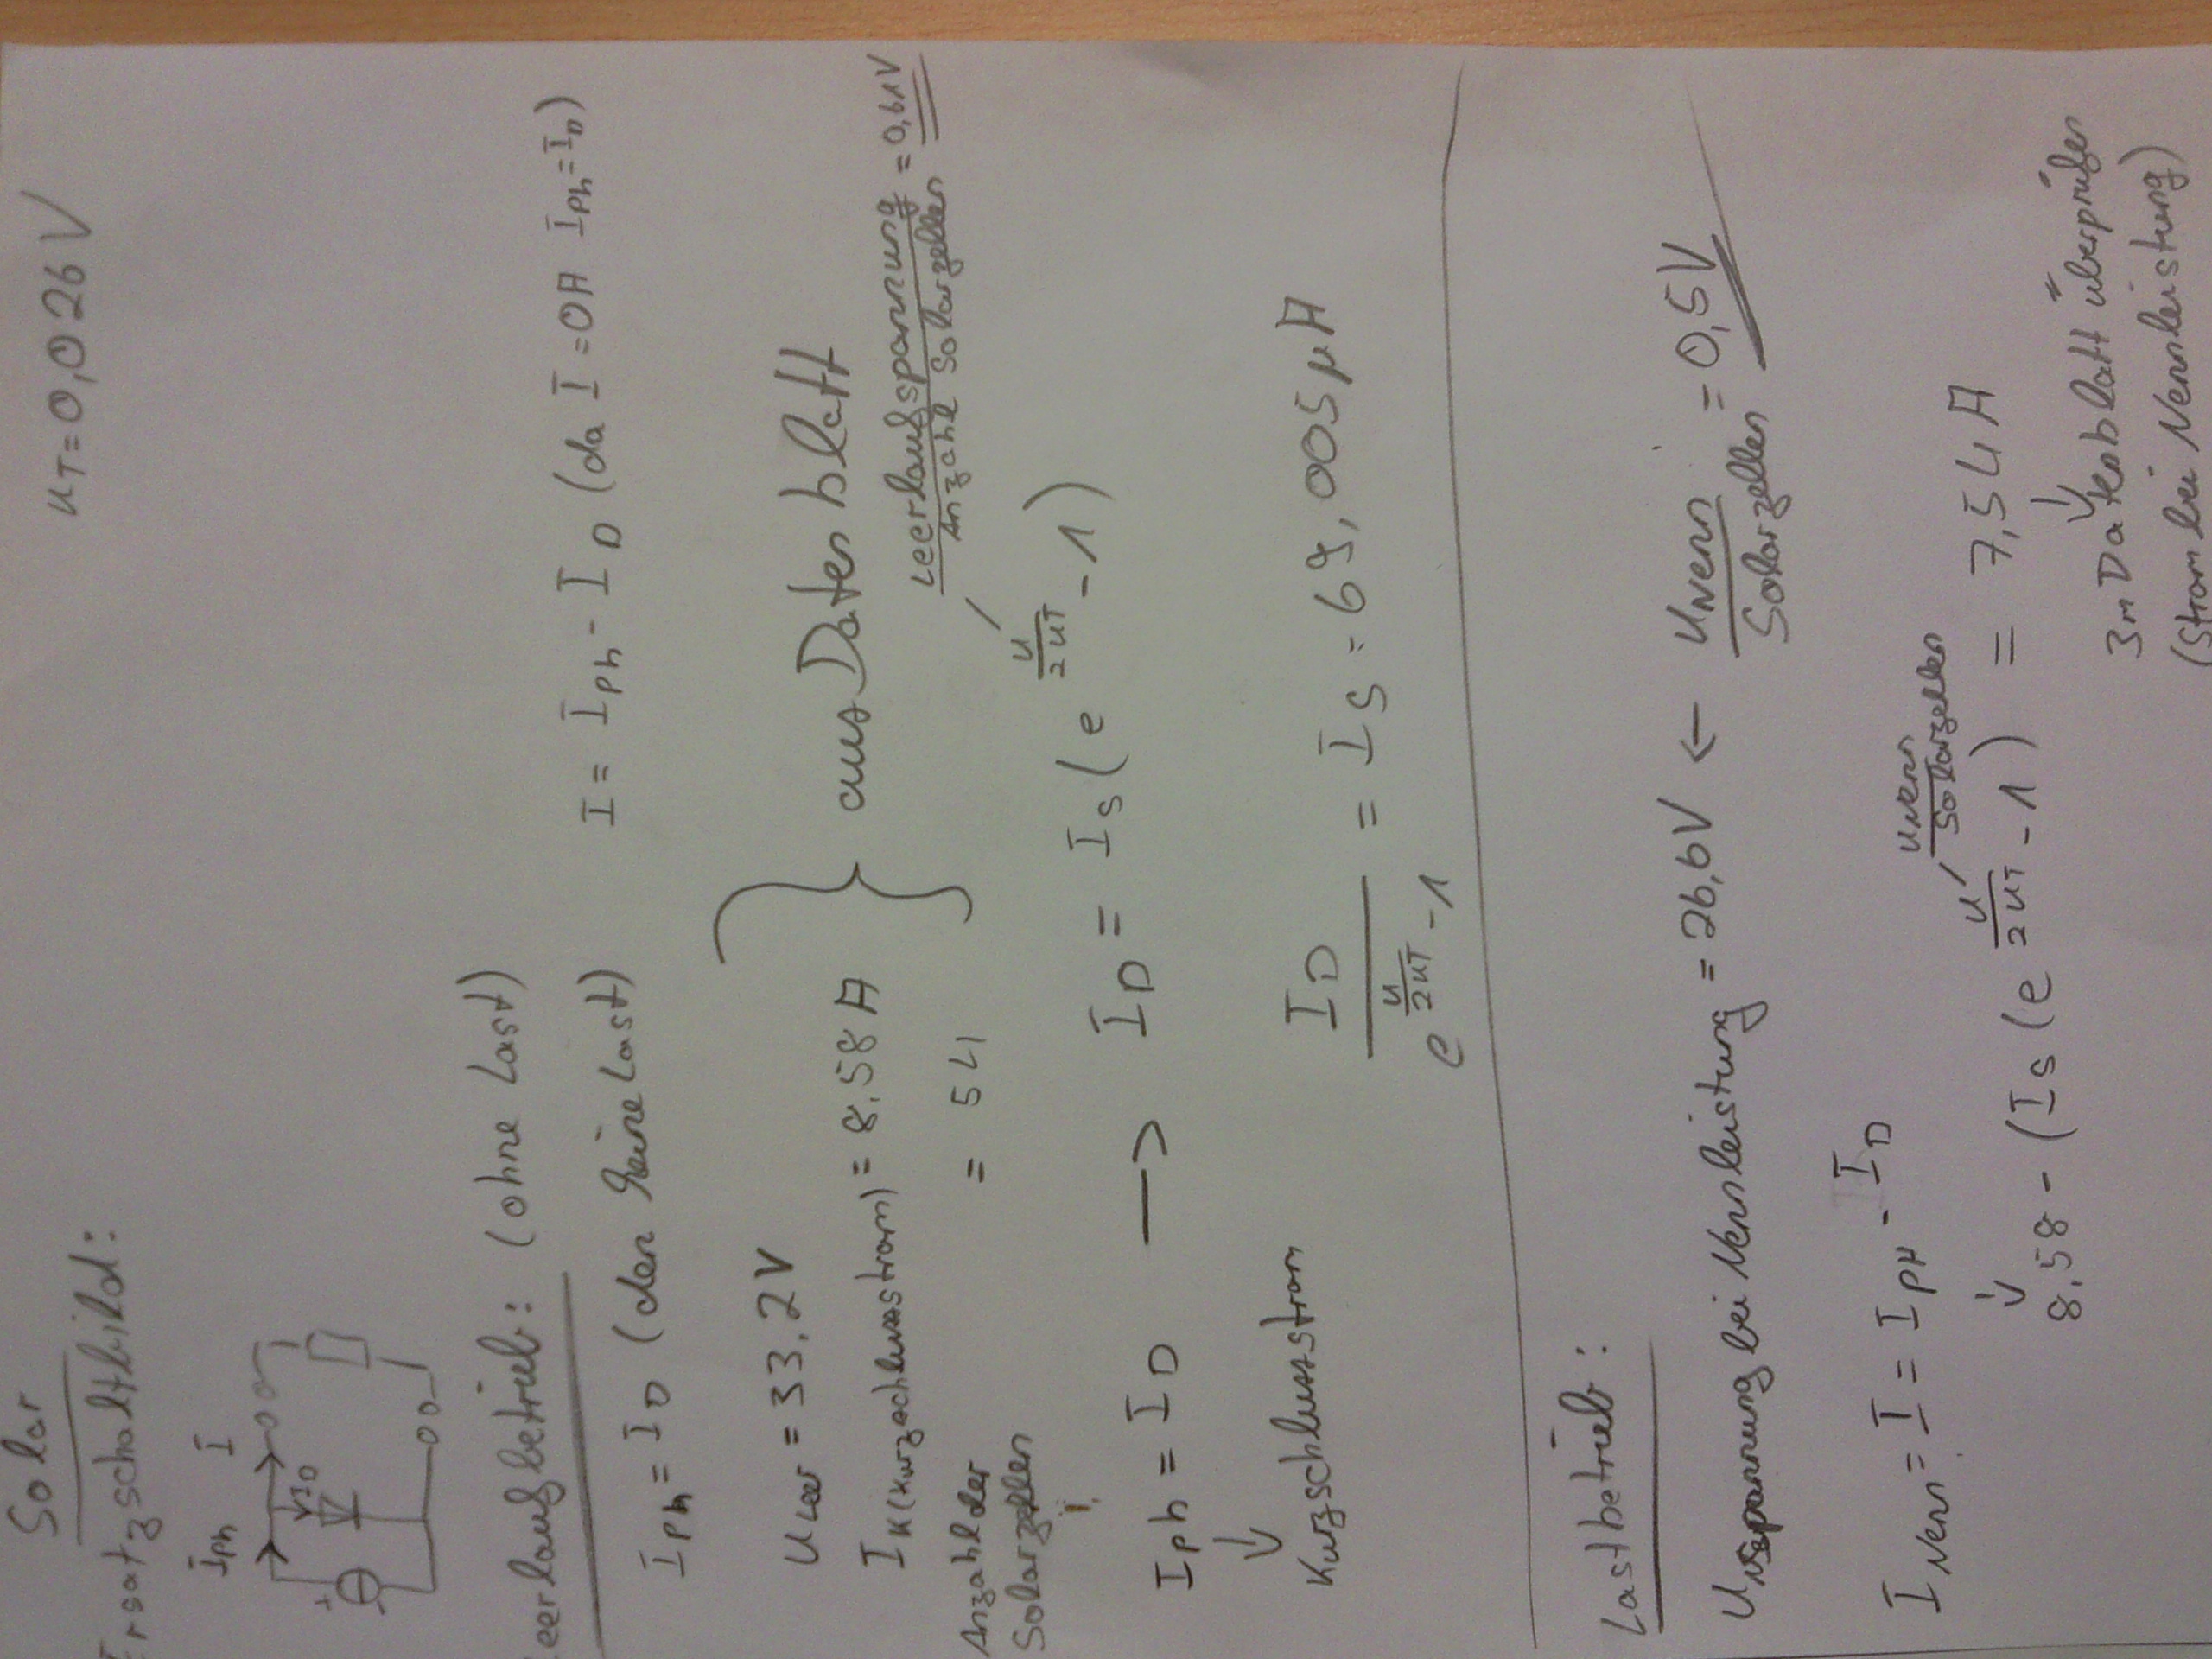 Solar
U_T = 0,026V
Ersatzschaltbild:
I_Ph I
I_D
Leerlaufbetrieb: (ohne Last)
I = I_Ph - I_D (da I = 0A I_Ph = I_D)
I_Ph = I_D (den keine Last)
U_Leer = 33,2V
I_K (Kurzschlussstrom) = 8,58A
aus Datenblatt
Anzahl der Solarzellen = 54
Leerlaufspannung / Anzahl Solarzellen = 0,61V
I_Ph = I_D → I_D = I_S (e^(U/2U_T) - 1)
↓
Kurzschlussstrom
I_D / (e^(U/2U_T) - 1) = I_S = 69,005 µA
Lastbetrieb:
U_Nspannung bei Nennleistung = 26,6V ← U_Nenn / Solarzellen = 0,5V
I_Nenn = I = I_PH - I_D
U_Nenn / Solarzellen
↓
8,58 - (I_S (e^(U/2U_T) - 1) = 7,54A
↓
Im Datenblatt überprüfen
(Strom bei Nennleistung)